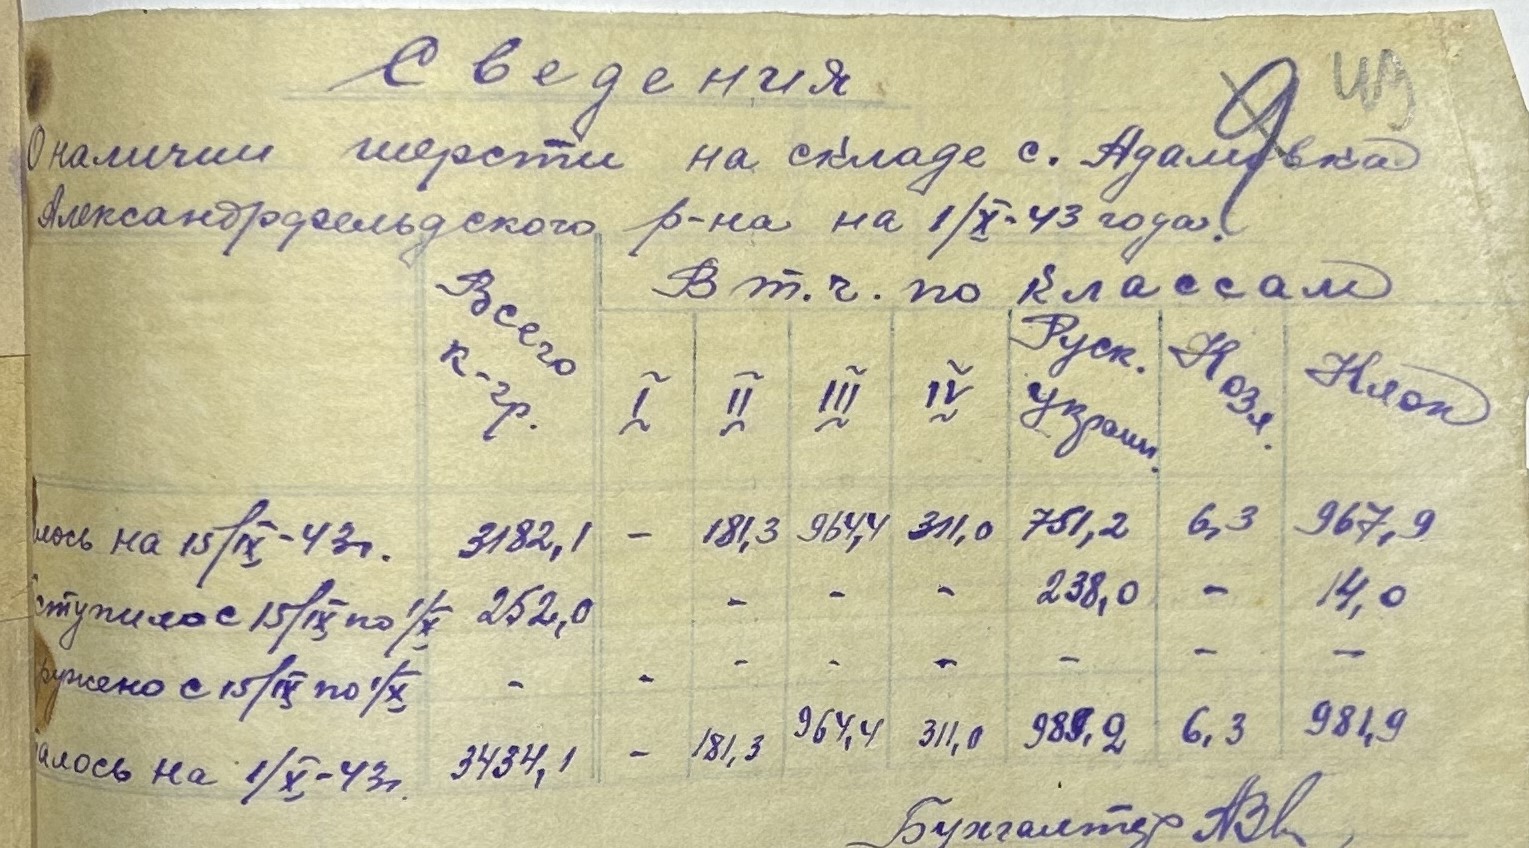 Сведения
из
О наличии шерсти на складе с. Адамовка
Александрфельдского р-на на 1/X-43 года.
Всего к-гр. В т.ч. по классам
I II III IV Руск. украин. Козя. Клок
лось на 15/IX-43г. 3182,1 - 181,3 964,4 311,0 751,2 6,3 967,9
ступило с 15/IX по 1/X 252,0 - - - 238,0 - 14,0
ружено с 15/IX по 1/X - - - - - - - -
алось на 1/X-43г. 3434,1 - 181,3 964,4 311,0 989,2 6,3 981,9
Бухгалтер